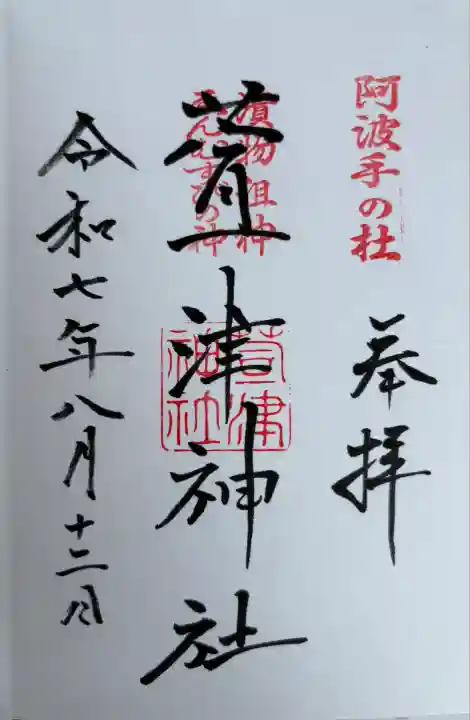 阿波手の杜
奉拝
漬物祖神
えんむすびの神
萱津神社
萱津
神社
令和七年八月十二日